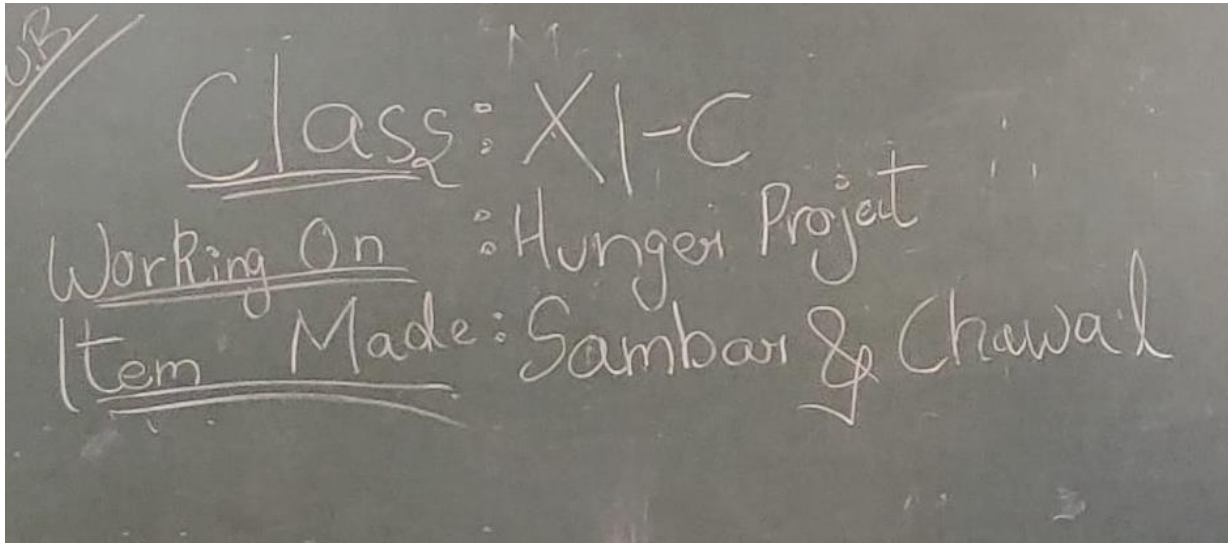 Class: XI-C
Working On : Hunger Project
Item Made: Sambar & Chawal